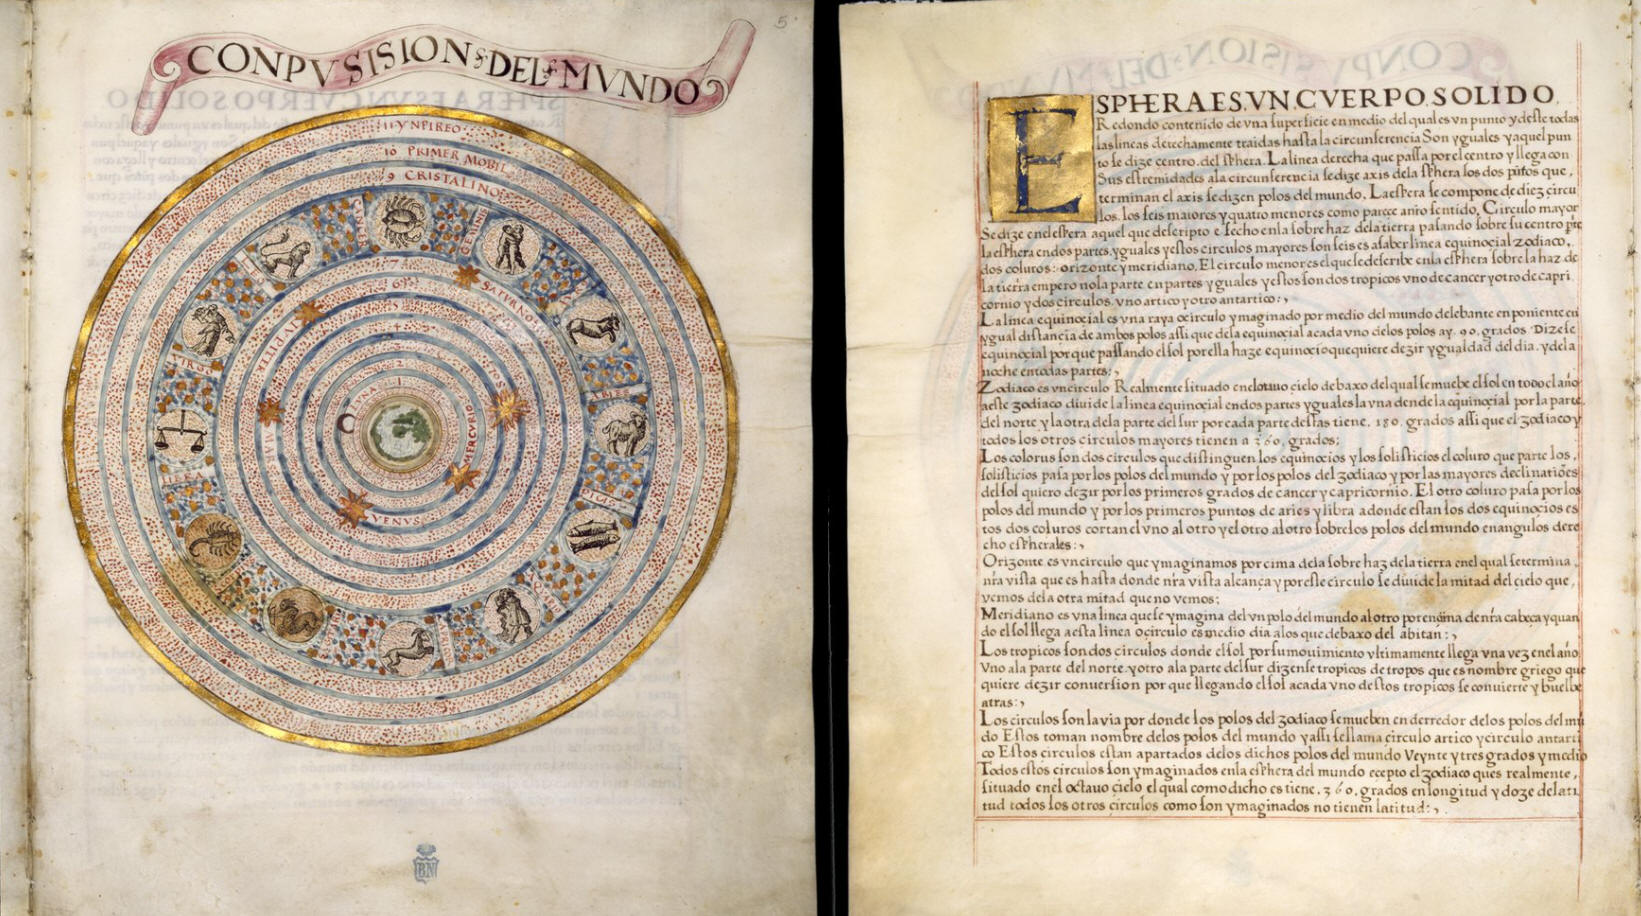 5
CONPVSISION DEL MVNDO
11 EYNPIREO
10 PRIMER MOBIL
9 CRISTALINO
CANCER
GEMINIS
VIRGO
ARIES
PICIS
LIBRA
7
SATVRNO
6
IVPITER
5
MARS
4
2
1
LVNA
MERCVRIO
VENVS
BN
ESPHERA ES VN CVERPO SOLIDO
Redondo contenido de vna superficie en medio del qual es vn punto y deste todas
las lineas derechamente traidas hasta la circunserencia Son yguales y aquel pun
to se dize centro del sphera. La linea derecha que passa por el centro y llega con
Sus estremidades ala circunserencia se dize axis dela sphera los dos pũtos que,
terminan el axis se dizen polos del mundo. La espera se compone de diez circu
los. los seis maiores y quatro menores como parece a nr̃o sentido. Circulo mayor
Se dize en el espera aquel que descripto e fecho en la sobre haz dela tierra pasando sobre su centro pte
la esphera en dos partes yguales y estos circulos mayores son seis es asaber linea equinocial zodiaco,
dos coluros: orizonte y meridiano. El circulo menor es el que se describe enla esphera sobre la haz de
la tierra empero nola parte en partes yguales y estos son dos tropicos vno de cancer y otro de capri
cornio y dos circulos vno artico y otro antartico:,
La linea equinocial es vna raya o circulo ymaginado por medio del mundo de lebante en poniente en
ygual distancia de ambos polos assi que dela equinocial acada vno delos polos ay .90. grados Dizese
equinocial por que passando el sol por ella haze equinocio que quiere dezir ygualdad del dia y dela
noche en todas partes:,
Zodiaco es vn circulo Realmente situado en el otauo cielo debaxo del qual se muebe el sol en todo el año
aeste zodiaco diuide la linea equinocial en dos partes yguales la vna dende la equinocial por la parte
del norte y la otra dela parte del sur por cada parte destas tiene. 180. grados assi que el zodiaco y
todos los otros circulos mayores tienen a 360. grados;
Los colorus son dos circulos que distinguen los equinocios y los solisticios el coluro que parte los,
solisticios pasa por los polos del mundo y por los polos del zodiaco y por las mayores declinatiões
del sol quiero dezir por los primeros grados de cancer y capricornio. El otro coluro pasa por los
polos del mundo y por los primeros puntos de aries y libra adonde estan los dos equinocios es
tos dos coluros cortan el vno al otro y el otro al otro sobre los polos del mundo en angulos dere
cho espherales:,
Orizonte es vn circulo que ymaginamos por cima dela sobre haz dela tierra en el qual se termina,
nr̃a vista que es hasta donde nr̃a vista alcança y por esse circulo se diuide la mitad del cielo que,
vemos dela otra mitad que no vemos;
Meridiano es vna linea que se ymagina del vn polo del mundo al otro por encima de nr̃a cabeça y quan
do el sol llega aesta linea o circulo es medio dia alos que debaxo del abitan:,
Los tropicos son dos circulos donde el sol por su mouimiento vltimamente llega vna vez en el año
vno ala parte del norte y otro ala parte del sur dizense tropicos de tropos que es nombre griego que
quiere dezir conuersion por que llegando el sol acada vno destos tropicos se conuierte y buelbe
atras:,
Los circulos son la via por donde los polos del zodiaco se mueben en derredor delos polos del mũ
do Estos toman nombre delos polos del mundo y assi se llama circulo artico y circulo antarti
co Estos circulos estan apartados delos dichos polos del mundo Veynte y tres grados y medio
Todos estos circulos son ymaginados enla esphera del mundo ecepto el zodiaco ques realmente,
situado en el octauo cielo el qual como dicho es tiene. 360. grados en longitud y doze de lati
tud todos los otros circulos como son ymaginados no tienen latitud:,